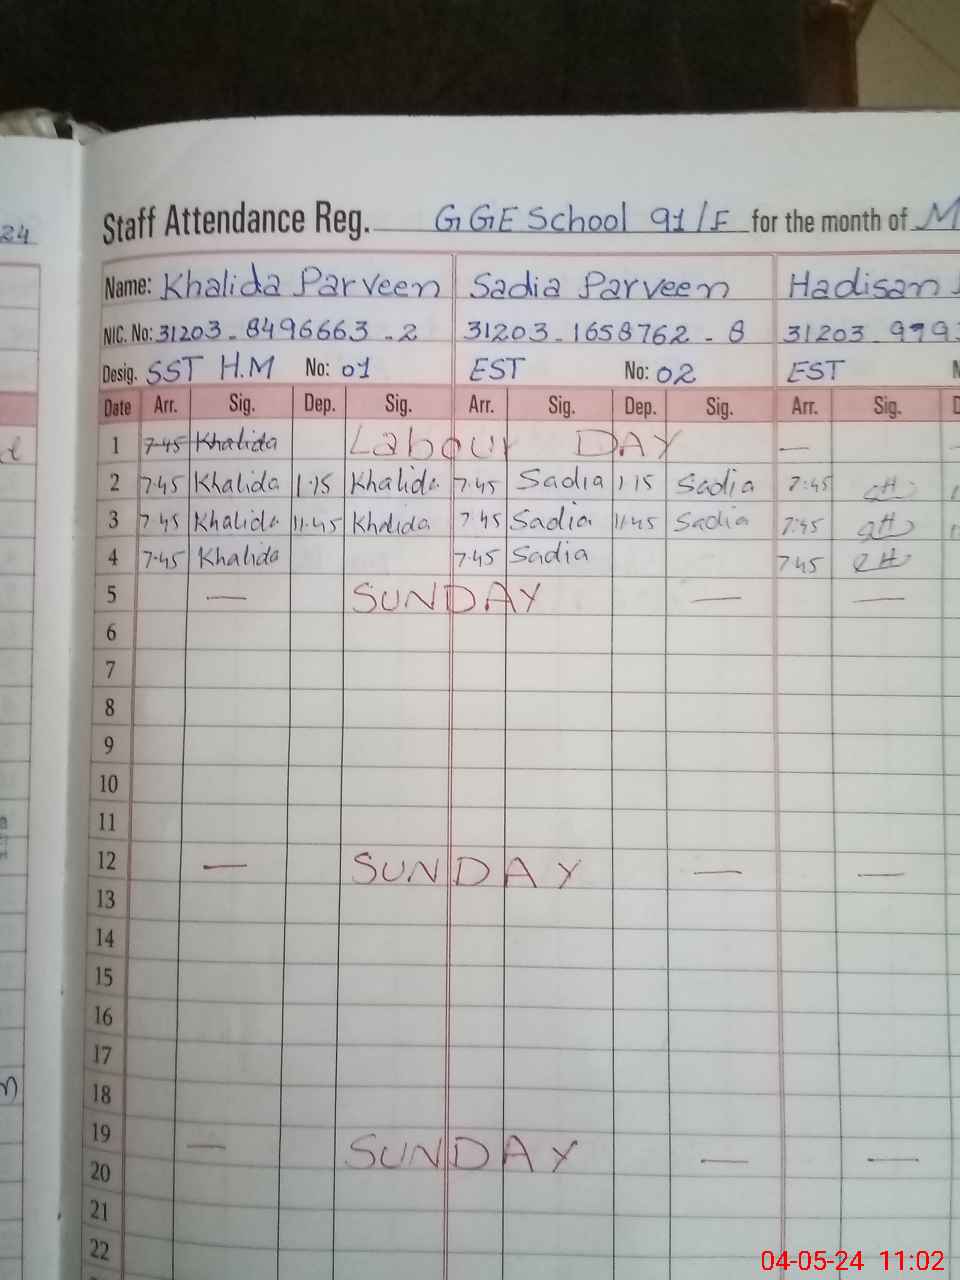 24
Staff Attendance Reg. GGE School 91/F for the month of M
Name: Khalida Parveen Sadia Parveen Hadisan
NIC. No: 31203-8496663-2 31203-1658762-8 31203-999
Desig. SST H.M No: 01 EST No: 02 EST
Date Arr. Sig. Dep. Sig. Arr. Sig. Dep. Sig. Arr. Sig. D
1 7-45 Khalida Labour DAY —
2 7.45 Khalida 1.15 Khalida 7.45 Sadia 1.15 Sadia 7:45
3 7.45 Khalida 11.45 Khalida 7.45 Sadia 11.45 Sadia 7:45
4 7.45 Khalida 7.45 Sadia 7.45
5 — SUNDAY — —
6
7
8
9
10
11
12 — SUNDAY — —
13
14
15
16
17
18
19 — SUNDAY — —
20
21
22
04-05-24 11:02